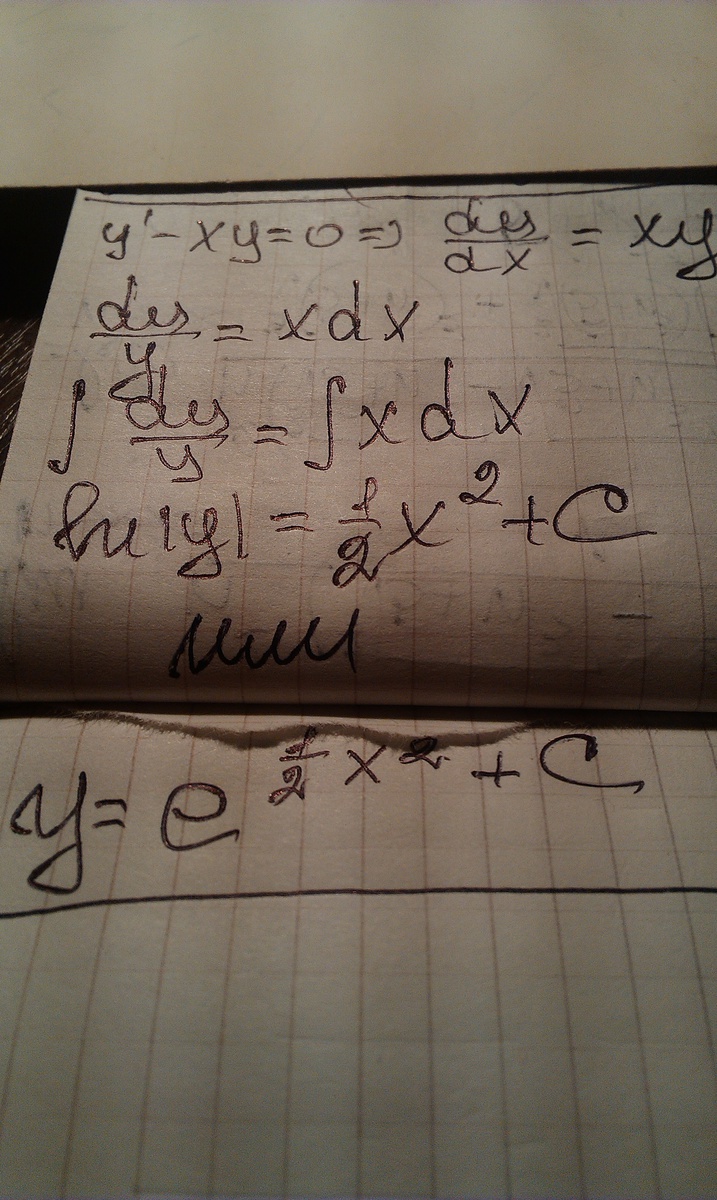 y' - xy = 0 => dy/dx = xy
dy/y = x dx
∫ dy/y = ∫ x dx
ln |y| = 1/2 x² + C
или
y = e^(1/2 x² + C)